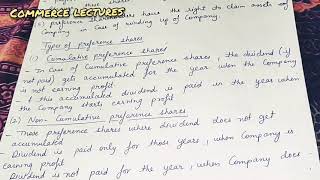 COMMERCE LECTURES
preference shares have the right to claim assets of
Company in Case of winding up of Company.
Types of preference shares
(1) Cumulative preference shares
- In Case of Cumulative preference shares, the dividend (if
not paid) gets accumulated for the year when the Company
is not earning profit
& this accumulated dividend is paid in the year when
the Company starts earning profit
(2) Non- Cumulative preference shares
- Those preference shares where dividend does not get
accumulated
- Dividend is paid only for those years, when Company is
earning profit
Dividend is not paid for the year, when Company does